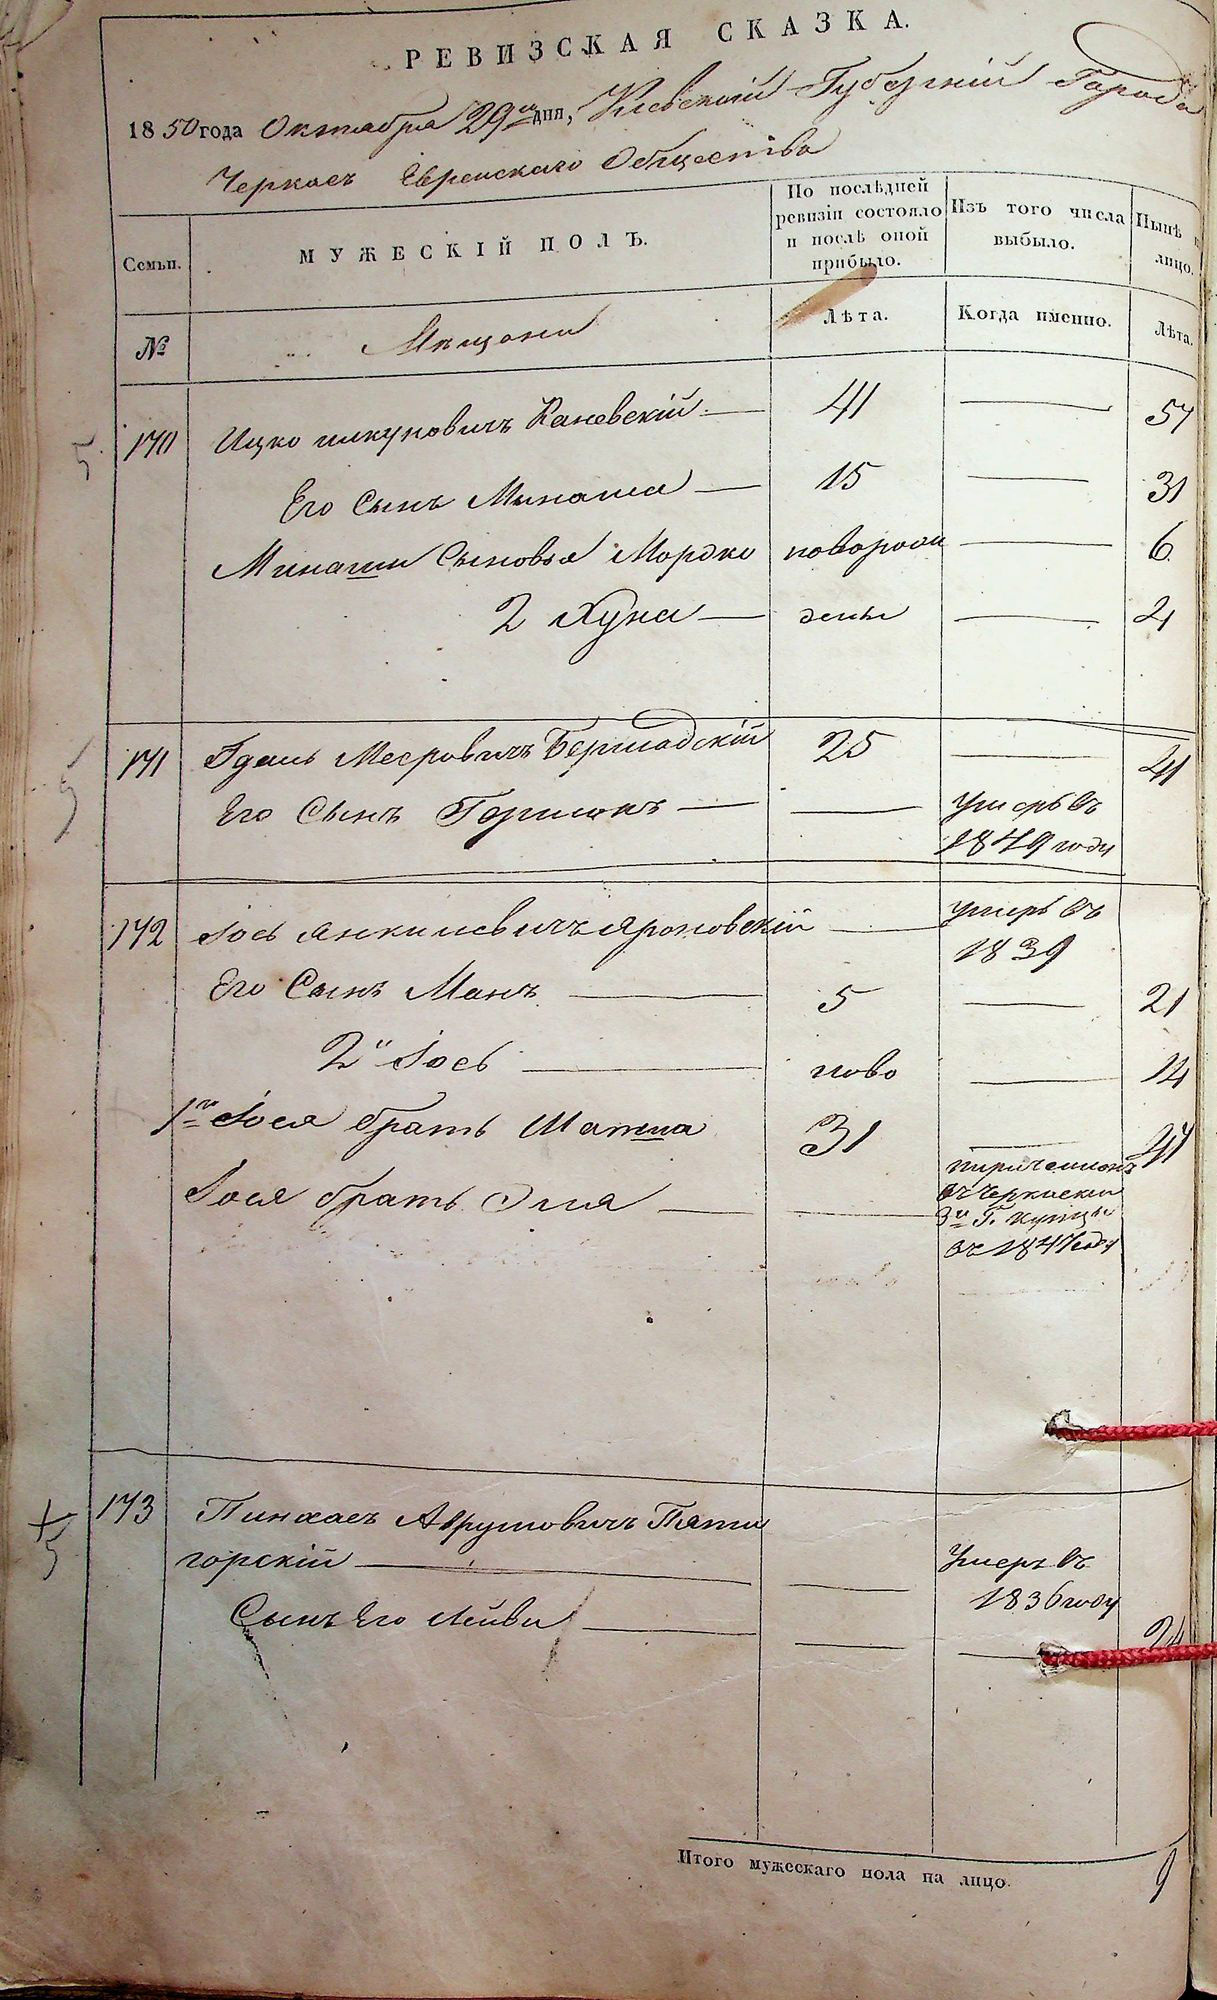 РЕВИЗСКАЯ СКАЗКА.
1850 года Октября 29го дня, Киевской Губерніи Города
Черкасъ Еврейскаго Общества
Семьи. МУЖЕСКІЙ ПОЛЪ. По послѣдней ревизіи состояло и послѣ оной прибыло. Изъ того числа выбыло. Нынѣ на лицо.
№ Мещани Лѣта. Когда именно. Лѣта.
5. 170 Ицко Каневскій — 41 — 57
Его Сынъ Минаша — 15 — 31
Минаши Сыновья Мордко новорож — 6
2 Хуна — дены — 4
5 171 Мееровичъ Бершадскій 25 — 41
Его Сынъ Гершонъ — — умеръ въ
1849 году
172 Іось Янкилевичъ — умеръ въ
1839
Его Сынъ Манъ — 5 — 21
2й Іось — ново — 14
1го Іося братъ Матиа 31 — 47
Іося братъ Эля — — причисленъ
въ Черкаскіи
3й Г. купцы
въ 1847 году
+ 5 173 Пинхасъ Абрумовичъ Пяти
горскій — — Умеръ въ
1836 году
Сынъ Его Лейби — — — 24
Итого мужескаго пола на лицо. 9